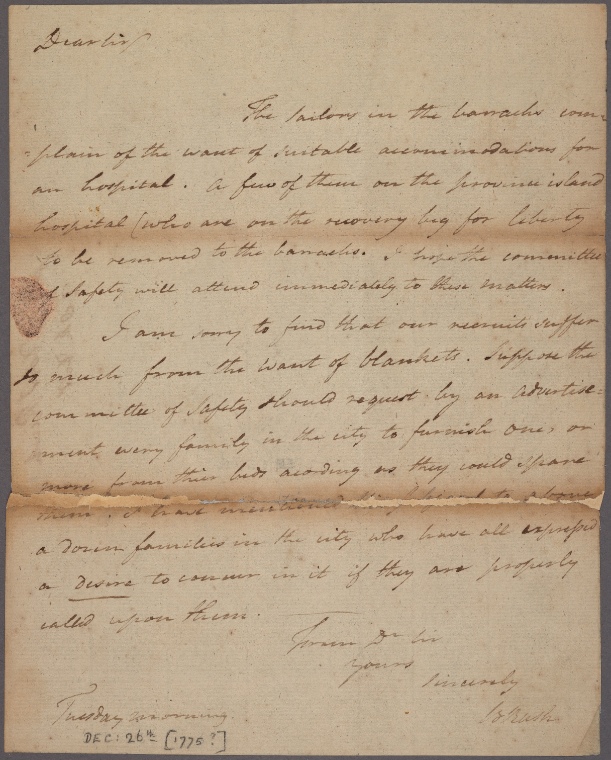 Dear Sir
The sailors in the barracks com-
-plain of the want of suitable accommodations for
an hospital. A few of them on the province island
hospital (who are on the recovery beg for liberty
to be removed to the barracks. I hope the committee
of Safety will attend immediately to these matters.
I am sorry to find that our recruits suffer
so much from the want of blankets. Suppose the
committee of Safety should request by an advertise-
ment every family in the city to furnish one, or
more from thier beds acording as they could spare
them. I have mentioned this to above
a dozen families in the city who have all expressed
a Desire to concur in it if they are properly
called upon them.
From Dr Sir
yours
sincerely
B Rush
Tuesday morning.
DEC: 26th [1775?]